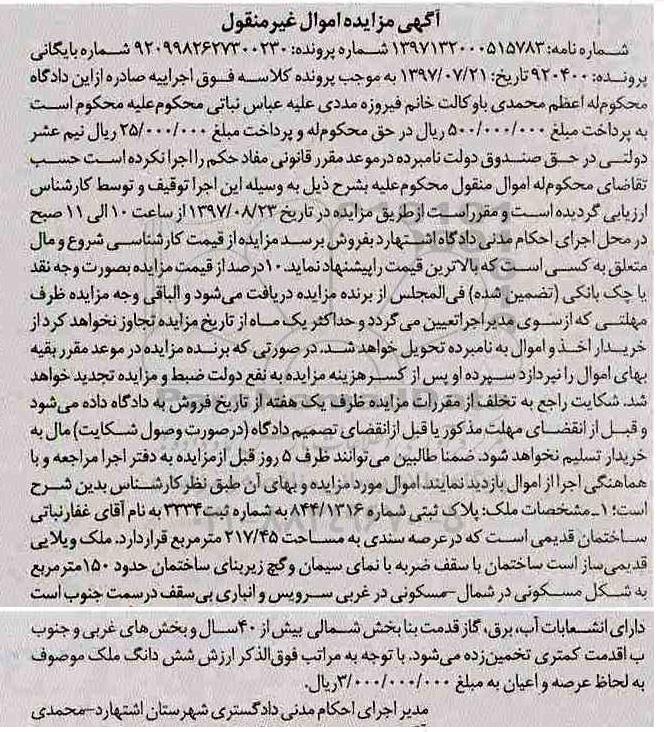 آگهی مزایده اموال غیرمنقول
شماره نامه: ۱۳۹۷۱۳۲۰۰۰۵۱۵۷۸۳ شماره پرونده: ۹۲۰۹۹۸۲۶۲۷۳۰۰۲۳۰ شماره بایگانی
پرونده: ۹۲۰۴۰۰ تاریخ: ۱۳۹۷/۰۷/۲۱ به موجب پرونده کلاسه فوق اجراییه صادره ازاین دادگاه
محکوم‌له اعظم محمدی باوکالت خانم فیروزه مددی علیه عباس نباتی محکوم‌علیه محکوم است
به پرداخت مبلغ ۵۰۰/۰۰۰/۰۰۰ ریال در حق محکوم‌له و پرداخت مبلغ ۲۵/۰۰۰/۰۰۰ ریال نیم عشر
دولتی در حق صندوق دولت نامبرده درموعد مقرر قانونی مفاد حکم را اجرا نکرده است حسب
تقاضای محکوم‌له اموال منقول محکوم‌علیه بشرح ذیل به وسیله این اجرا توقیف و توسط کارشناس
ارزیابی گردیده است و مقرر است از طریق مزایده در تاریخ ۱۳۹۷/۰۸/۲۳ از ساعت ۱۰ الی ۱۱ صبح
در محل اجرای احکام مدنی دادگاه اشتهارد بفروش برسد مزایده از قیمت کارشناسی شروع و مال
متعلق به کسی است که بالاترین قیمت راپیشنهاد نماید. ۱۰درصد از قیمت مزایده بصورت وجه نقد
یا چک بانکی (تضمین شده) فی‌المجلس از برنده مزایده دریافت می‌شود و الباقی وجه مزایده ظرف
مهلتی که ازسوی مدیر اجرا تعیین می‌گردد و حداکثر یک ماه از تاریخ مزایده تجاوز نخواهد کرد از
خریدار اخذ و اموال به نامبرده تحویل خواهد شد. در صورتی که برنده مزایده در موعد مقرر بقیه
بهای اموال را نپردازد سپرده او پس از کسر هزینه مزایده به نفع دولت ضبط و مزایده تجدید خواهد
شد. شکایت راجع به تخلف از مقررات مزایده ظرف یک هفته از تاریخ فروش به دادگاه داده می‌شود
و قبل از انقضای مهلت مذکور یا قبل ازانقضای تصمیم دادگاه (درصورت وصول شکایت) مال به
خریدار تسلیم نخواهد شود. ضمنا طالبین می‌توانند ظرف ۵ روز قبل ازمزایده به دفتر اجرا مراجعه و با
هماهنگی اجرا از اموال بازدید نمایند اموال مورد مزایده و بهای آن طبق نظر کارشناس بدین شرح
است: ۱ـ مشخصات ملک: پلاک ثبتی شماره ۸۴۴/۱۳۱۶ به شماره ثبت ۳۳۳۴ به نام آقای غفارنباتی
ساختمان قدیمی است که درعرصه سندی به مساحت ۲۱۷/۴۵ مترمربع قراردارد. ملک ویلایی
قدیمی‌ساز است ساختمان با سقف ضربه با نمای سیمان و گچ زیربنای ساختمان حدود ۱۵۰مترمربع
به شکل مسکونی در شمال -مسکونی در غربی سرویس و انباری بی‌سقف درسمت جنوب است
دارای انشعابات آب، برق، گاز قدمت بنا بخش شمالی بیش از ۴۰سال و بخش‌های غربی و جنوب
ب اقدمت کمتری تخمین‌زده می‌شود. با توجه به مراتب فوق‌الذکر ارزش شش دانگ ملک موصوف
به لحاظ عرصه و اعیان به مبلغ ۳/۰۰۰/۰۰۰/۰۰۰ریال.
مدیر اجرای احکام مدنی دادگستری شهرستان اشتهارد-محمدی